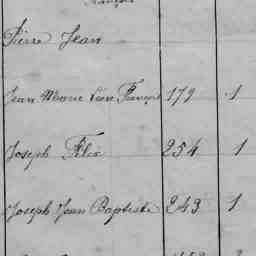 François
Pierre Jean
Jean Marie Pierre François 179 1
Joseph Félix 254 1
Joseph Jean Baptiste 243 1